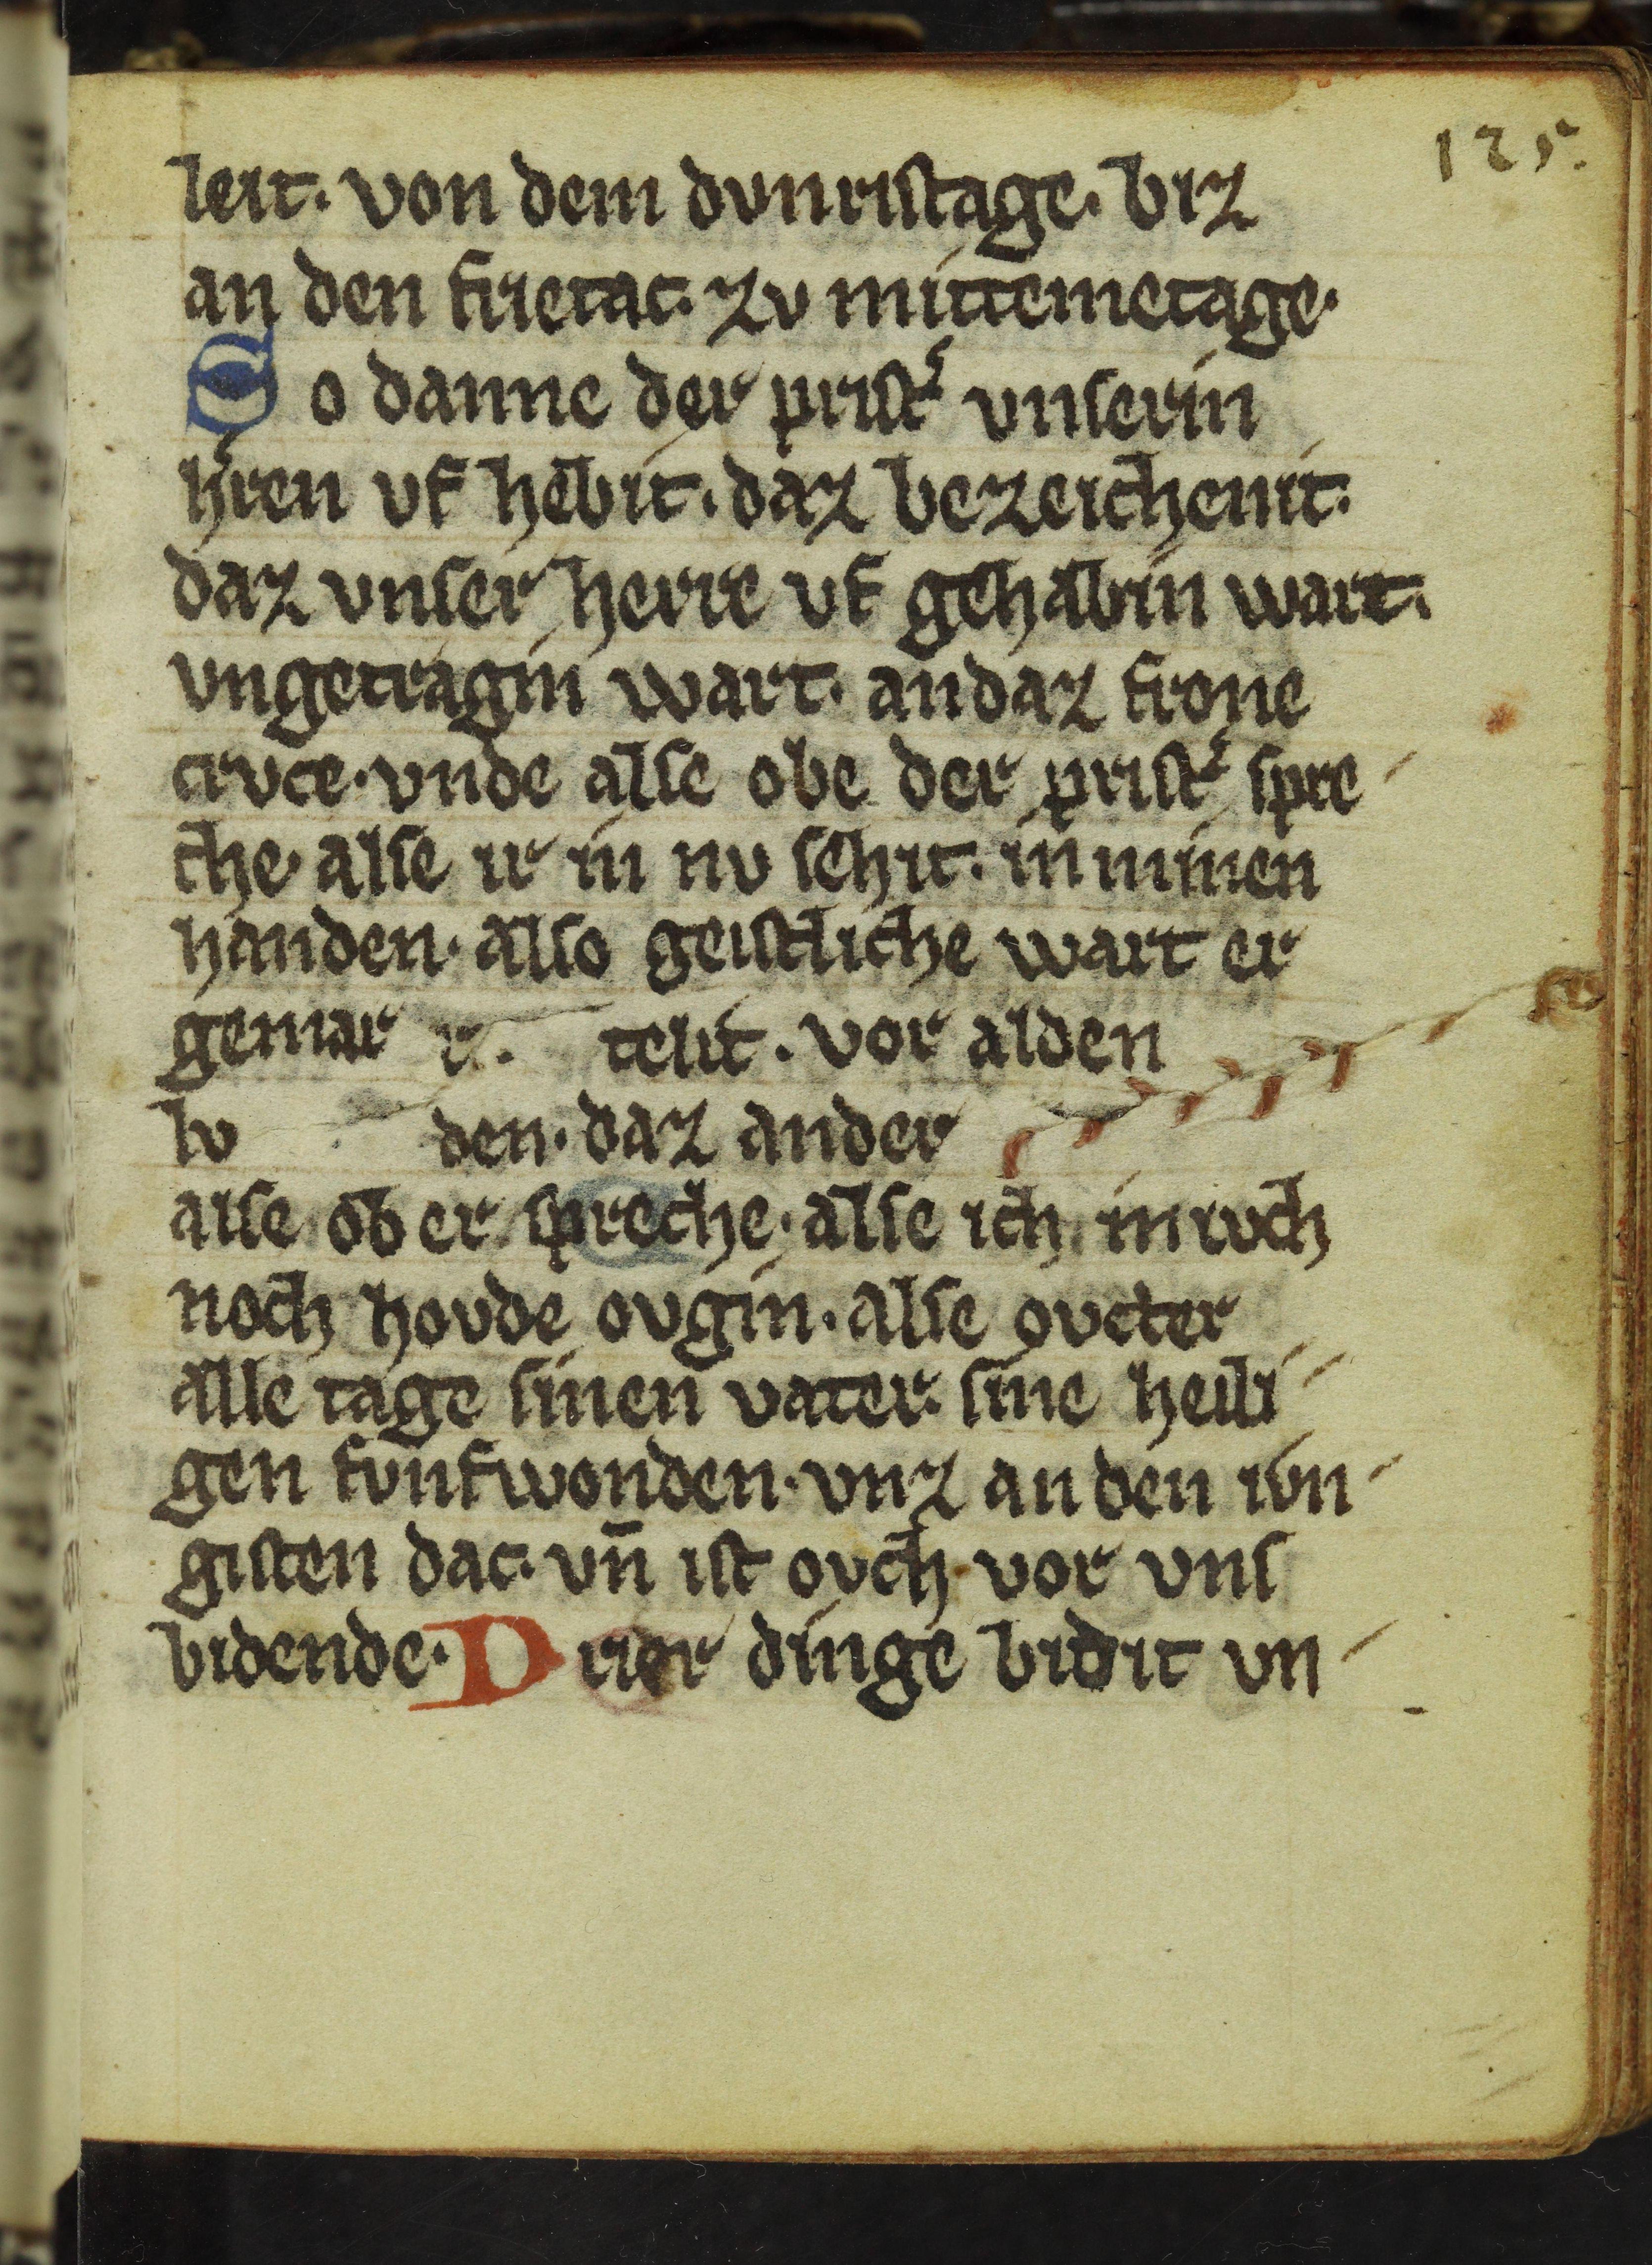 125.
leit. von dem dvnristage. biz
an den frietac. zv mittemetage.
So danne der prist͛ vnserin
h͛ren vf hebit. daz bezeichenit.
daz vnser herre vf gehabin wart.
vngetragin wart. andaz frone
crvce. vnde alse obe der prist͛ spre
che. alse ir in nv sehit. in minen
handen. also geistliche wart er
gemar telit. vor alden
lv den. daz ander
alse ob er spreche. alse ich in ivch
noch hovde ovgin. alse ovcter
alle tage sinen vater. sine heili
gen fvnfwonden. vnz an den ivn
gisten dac. vn̄ ist ovch vor vns
bidende. Drier dinge bidit vn